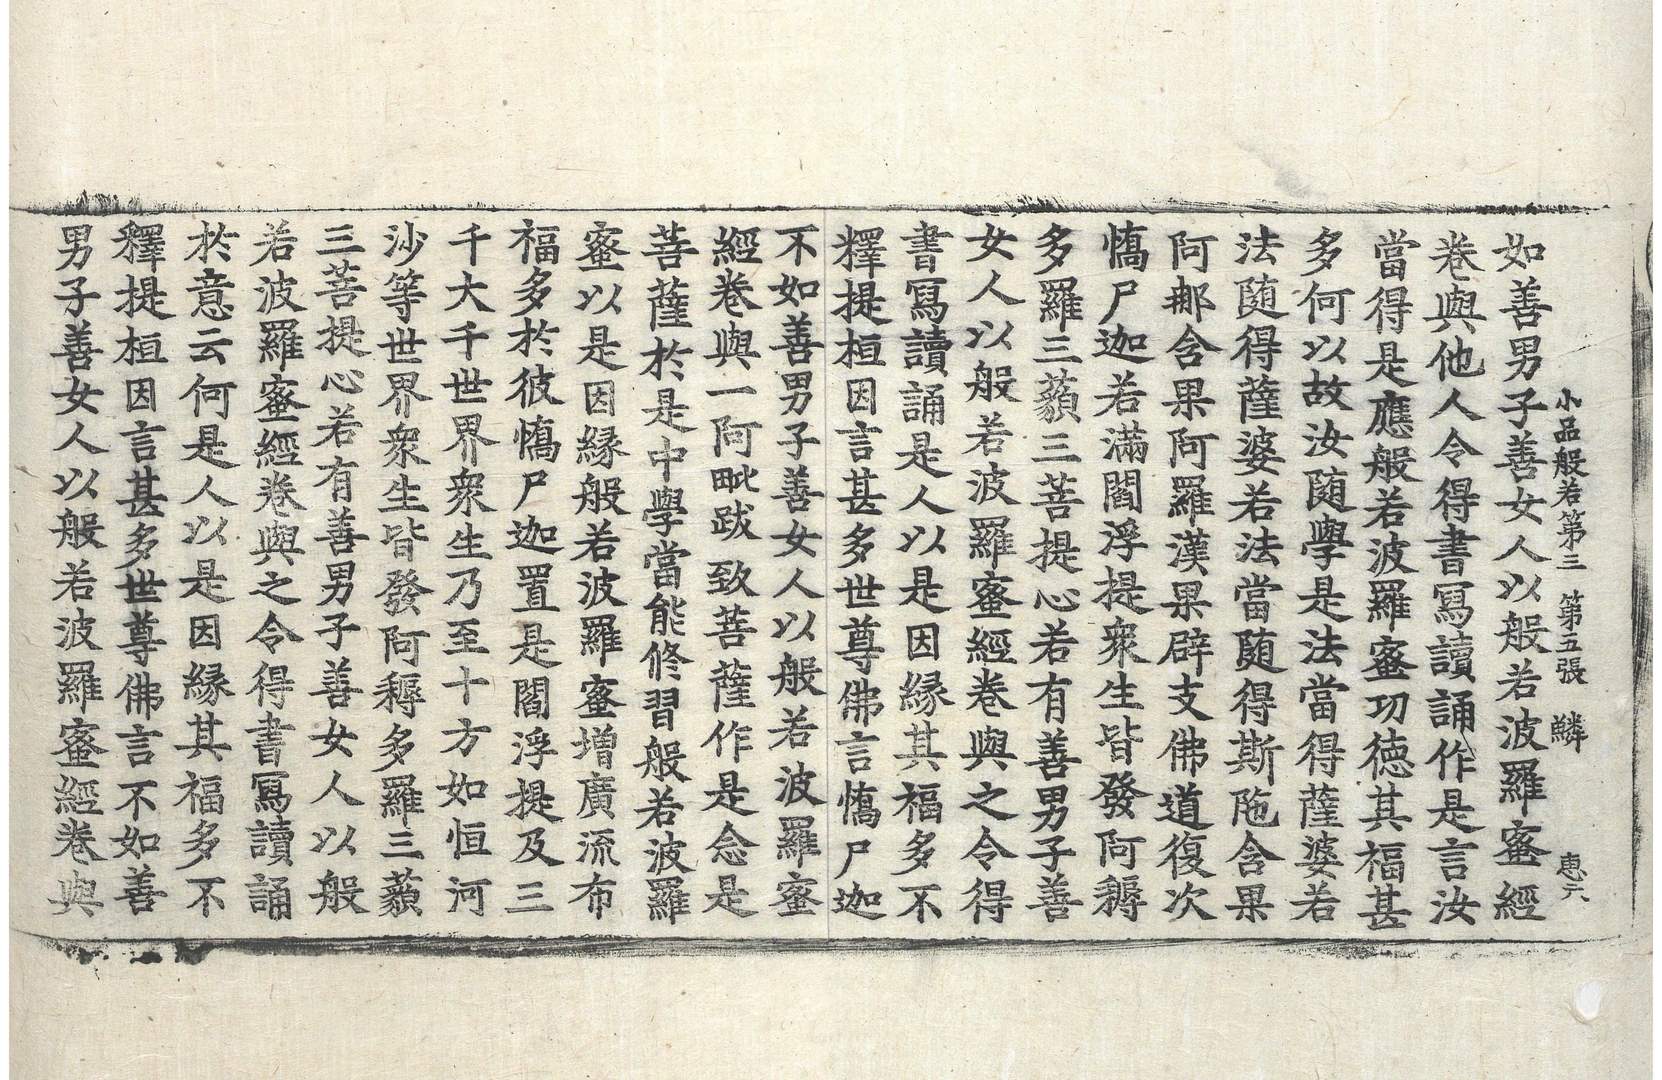 小品般若第三 第五張 鱗 惠六
如善男子善女人以般若波羅蜜經
卷與他人令得書寫讀誦作是言汝
當得是應般若波羅蜜功德其福甚
多何以故汝隨學是法當得薩婆若
法隨得薩婆若法當隨得斯陁含果
阿那含果阿羅漢果辟支佛道復次
憍尸迦若滿閻浮提衆生皆發阿耨
多羅三藐三菩提心若有善男子善
女人以般若波羅蜜經卷與之令得
書寫讀誦是人以是因緣其福多不
釋提桓因言甚多世尊佛言憍尸迦
不如善男子善女人以般若波羅蜜
經卷與一阿毗跋致菩薩作是念是
菩薩於是中學當能修習般若波羅
蜜以是因緣般若波羅蜜增廣流布
福多於彼憍尸迦置是閻浮提及三
千大千世界衆生乃至十方如恒河
沙等世界衆生皆發阿耨多羅三藐
三菩提心若有善男子善女人以般
若波羅蜜經卷與之令得書寫讀誦
於意云何是人以是因緣其福多不
釋提桓因言甚多世尊佛言不如善
男子善女人以般若波羅蜜經卷與